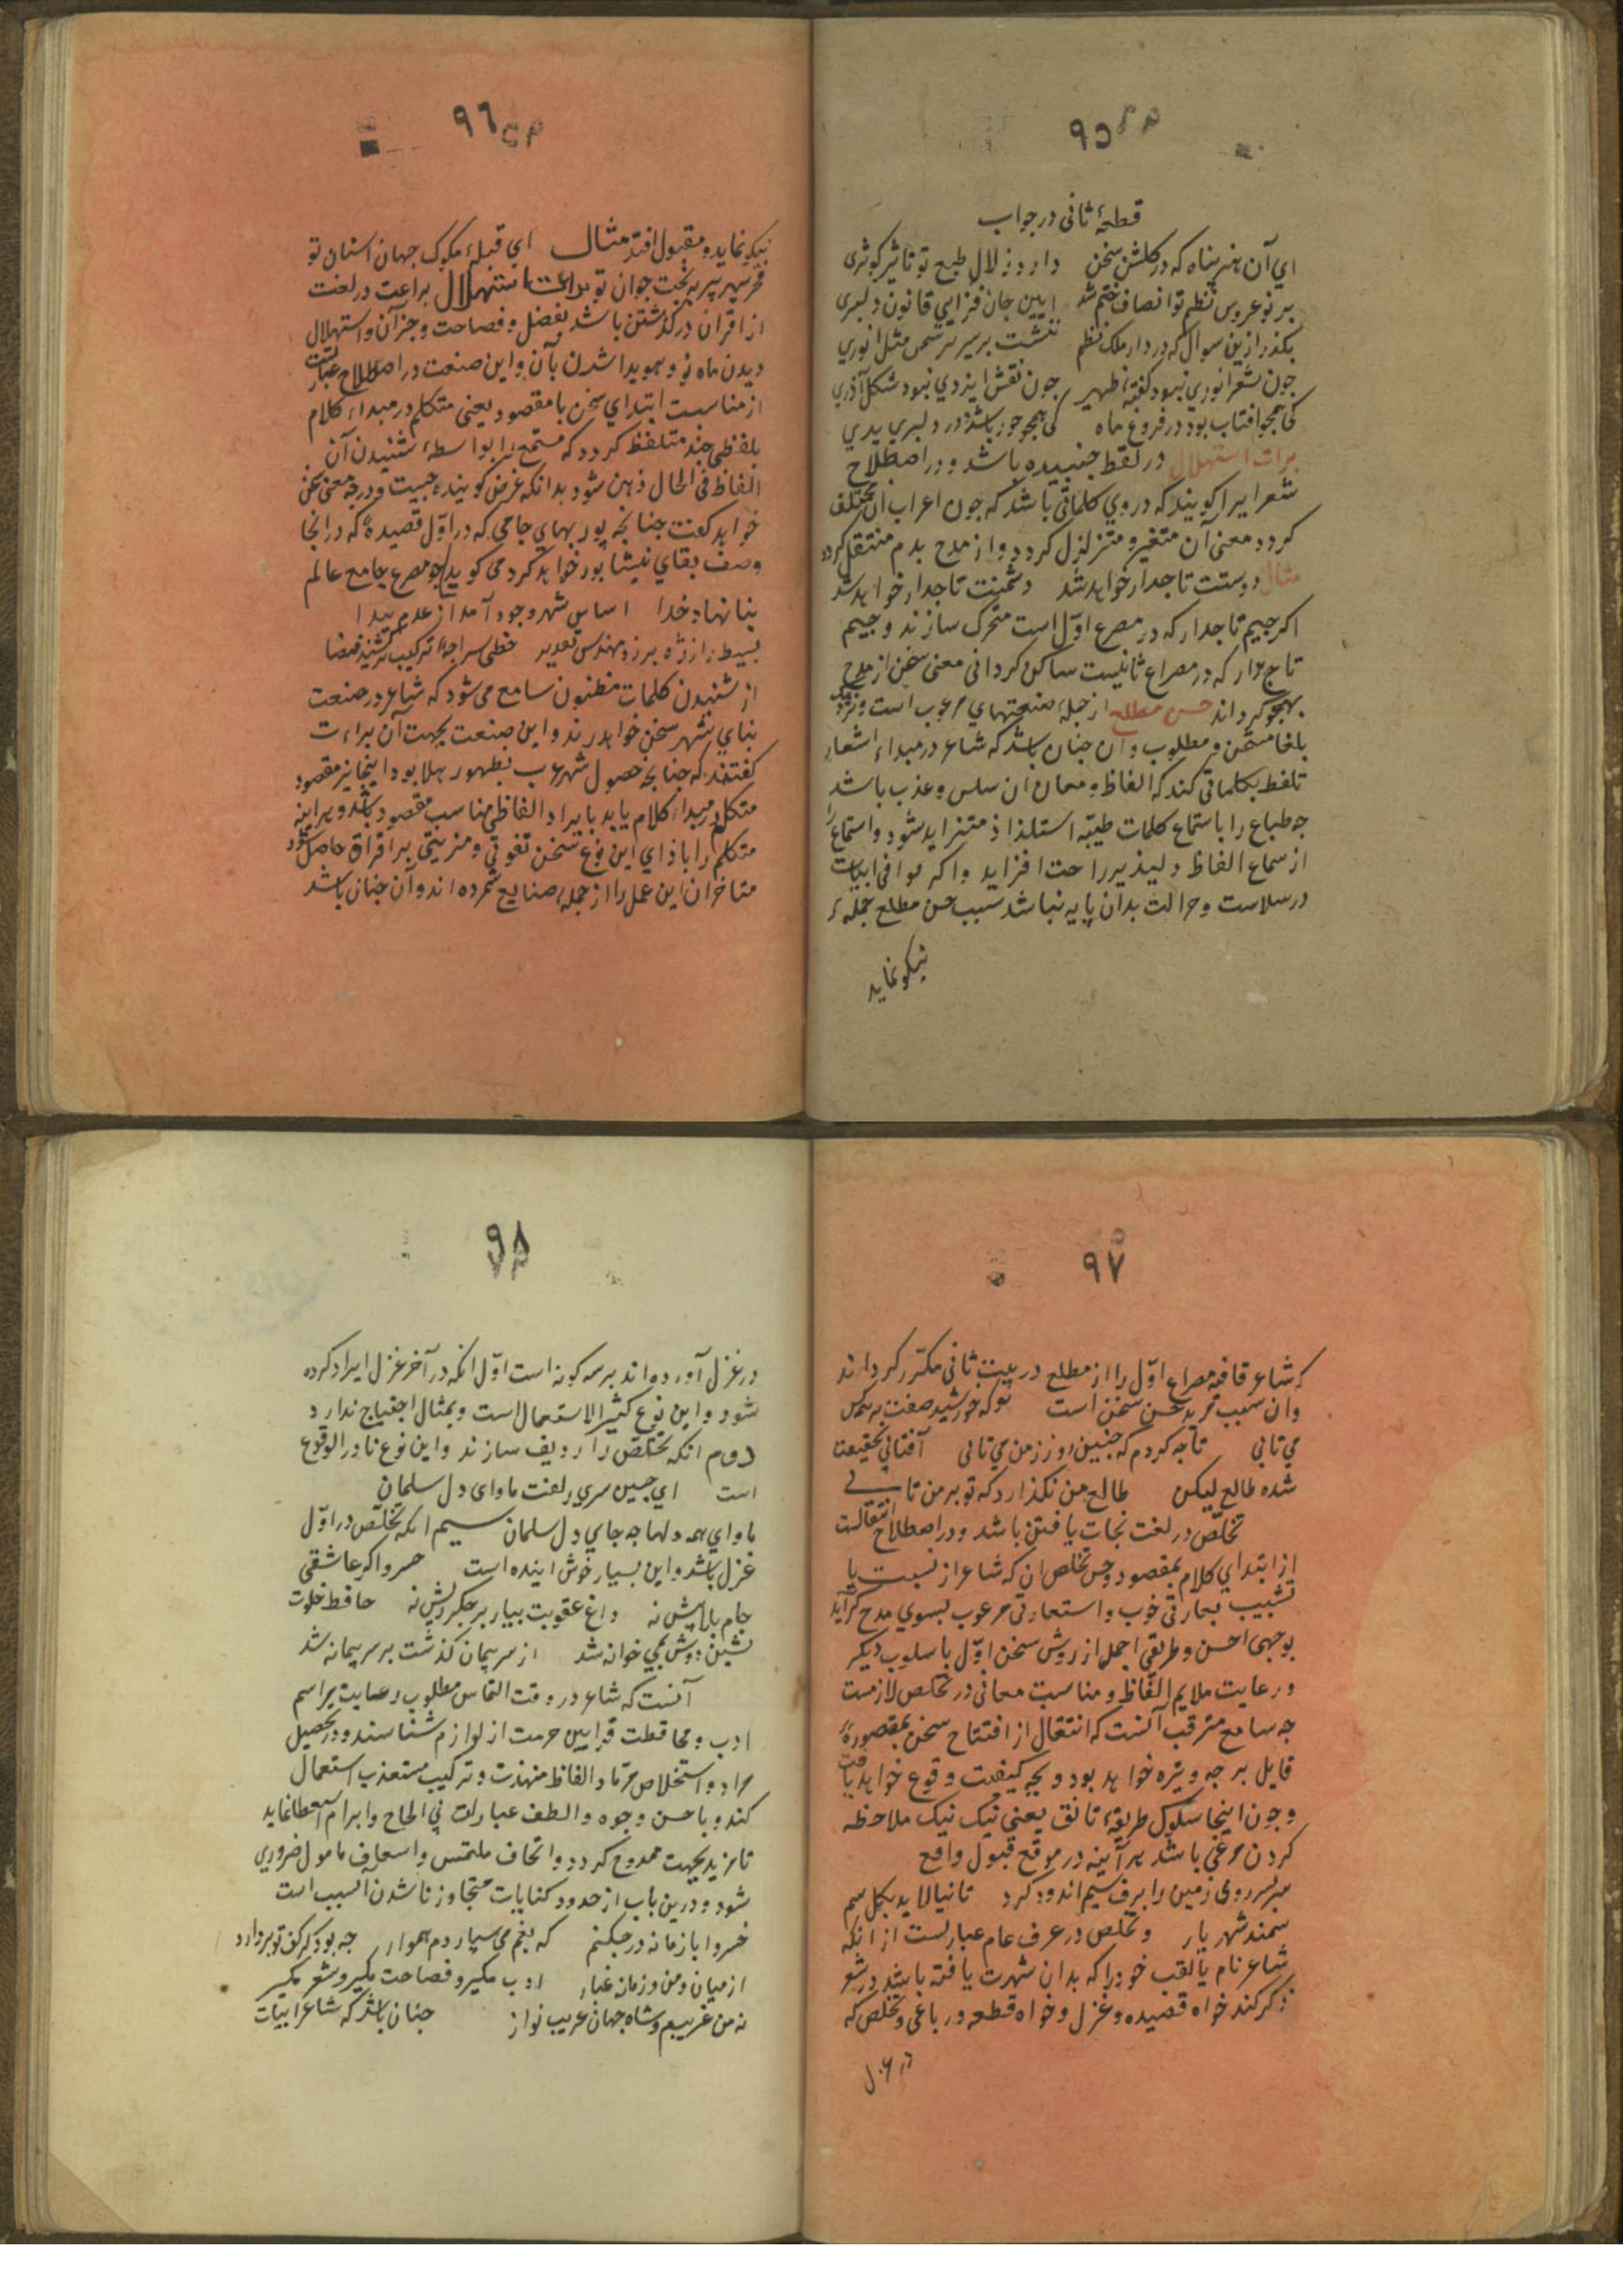 ۹۵
قطعهٔ ثانی در جواب
ای آن هنر پناه که در گلشن سخن دارد زلال طبع تو تاثیر کوثری
بر نو عروس نظم تو انصاف ختم شد ایین جان فزایی قانون دلبری
بکذر ازین سوال که در دار ملک نظم ننشست بر سریر سخن مثل انوری
چون شعر انوری نبود کفتهٔ ظهیر چون نقش ایزدی نبود شکل آذری
کی همچو افتاب بود در فروغ ماه کی همچو حور باشد در دلبری پری
براث استهلال در لغط جنبیده باشد و در اصطلاح
شعر ایرا کویند که در وی کلماتی باشد که چون اعراب ان مختلف
کردد معنی آن متغیر و متزلزل کردد و از مدح بدم منتقل کردد
مثال دوستت تاجدار خواهد شد دشمنت تاجدار خواهد شد
اکر جیم تاجدار که در مصرع اوّل است متحرک سازند و جیم
تاج دار که در مصراع ثانیست ساکن کردانی معنی سخن از مدح
بهجو کرداند حسن مطلع از جملهٔ صنعتهای مرغوب است و نزد
بلغا مستحسن و مطلوب و ان چنان باشد که شاعر در مبداء اشعار
تلفظ بکلماتی کند که الفاظ و معانی ان سلس و عذب باشد
چه طباع را باستماع کلمات طیّبه استلذاذ متزاید شود و استماع را
از سماع الفاظ دلپذیر راحت افزاید و اکر موافی ابیات
در سلاست و جزالت بدان پایه نباشد سبب حسن مطلع جملهٔ
نیکو نماید
۹٦
نیکو نماید و مقبول افتد مثال ای قبلهٔ ملوک جهان استان تو
فخر سپهر پیر به بخت جوان تو براعت استهلال براعت در لغت
از اقران در کذشتن باشد بفضل و فصاحت و جز آن و استهلال
دیدن ماه نو و هویدا شدن بآن و این صنعت در اصطلاح عبارتست
از مناسبت ابتدای سخن با مقصود یعنی متکلم در مبداء کلام
بلفظی چند متلفظ کردد که مستمع را بواسطهٔ شنیدن آن
الفاظ فی الحال ذهین شود بدانکه غرض کوینده چیست و در چه معنی سخن
خواهد کفت چنانچه پور بهای جامی که در اوّل قصیدهٔ که در انجا
وصف بقای نیشاپور خواهد کرد می کوید چو مصرع جامع عالم
بنا نهاد خدا اساس شهر وجود آمد از عدم پیدا
از شنیدن کلمات مظنون سامع می شود که شاعر در صنعت
بنای شهر سخن خواهد راند و این صنعت بجهت آن براءت
کفتند که چنانچه حصول شهر عرب بظهور هلال بود اینجا نیز مقصود
متکلم در مبداء کلام باید بایراد الفاظی مناسب مقصود باشد و هراینه
متکلم را بازای این نوع سخن تفوقی و مزیتی بر اقران حاصل شود
متاخران این عمل را از جملهٔ صنایع شمرده اند و آن چنان باشد
۹۷
که شاعر قافیه مصراع اوّل را از مطلع در بیت ثانی مکرّر کرداند
وان سبب تزید حسن سخن است توکه خورشید صفت بر همه کس
می تابی تا چه کردم که چنین روز ز من می تابی آفتابی بحقیقت
شده طالع لیکن طالع من نکذارد که تو بر من تابی
تخلّص در لغت نجات یافتن باشد و در اصطلاح انتقالست
از ابتدای کلام بمقصود و حسن تخلص ان که شاعر از نسبت یا
تشبیب بعبارتی خوب و استعارتی مرغوب بسوی مدح کراید
بوجهی احسن و طریقی اجمل از روش سخن اوّل باسلوب دیکر
و رعایت ملایم الفاظ و مناسبت معانی در تخلص لازمست
چه سامع مترقب آنست که انتقال از افتتاح سخن بمقصوره
قایل بر چه وتیره خواهد بود و بچه کیفیت وقوع خواهد یافت
و چون اینجا سلوک طریقهٔ تانق یعنی نیک نیک ملاحظه
کردن مرعی باشد هر آینه در موقع قبول واقع
سر بسر روی زمین را برف سیم اندود کرد تا نیالاید بکل سم
سمند شهریار و تخلص در عرف عام عبارتست از انکه
شاعر نام یا لقب خود را که بدان شهرت یافته باشد در شعر
ذکر کند خواه قصیده و غزل و خواه قطعه و رباعی و تخلص که
در غزل
۹۸
در غزل آورده اند بر سه کونه است اوّل انکه در آخر غزل ایراد کرده
شود و این نوع کثیر الاستعمال است و بمثال احتیاج ندارد
دوم انکه تخلص را ردیف سازند و این نوع نادر الوقوع
است ای چین سر زلفت ماوای دل سلمان
ماوای همه دلها چه جای دل سلمان سیم انکه تخلّص در اوّل
غزل باشد و این بسیار خوش اینده است خسروا کر عاشقی
جام بلا پیش نه داغ عقوبت بیار بر جکر ریش نه حافظ خلوت
نشین دوش بمی خوانه شد از سر پیمان کذشت بر سر پیمانه شد
آنست که شاعر در وقت التماس مطلوب رعایت مراسم
ادب و محافظت قوانین حرمت از لوازم شناسند و در تحصیل
مراد و استخلاص مرتاد الفاظ مهذب و ترکیب مستعذب استعمال
کند و باحسن وجوه و الطف عبارات بی الحاح و ابرام استعطا نماید
تا مزید بجهت ممدوح کردد و اتحاف ملتمس و اسعاف مامول ضروری
شود و درین باب از حدود کنایات متجاوز ناشدن انسب است
خسروا با زمانه در جنکم که بغم می سپارد م هموار چه بود کر کف تو بردارد
از میان من و زمانه غبار ادب مکیر و فصاحت مکیر و شعر مکیر
نه من غریبم و شاه جهان غریب نواز چنان باشد که شاعر ابیات